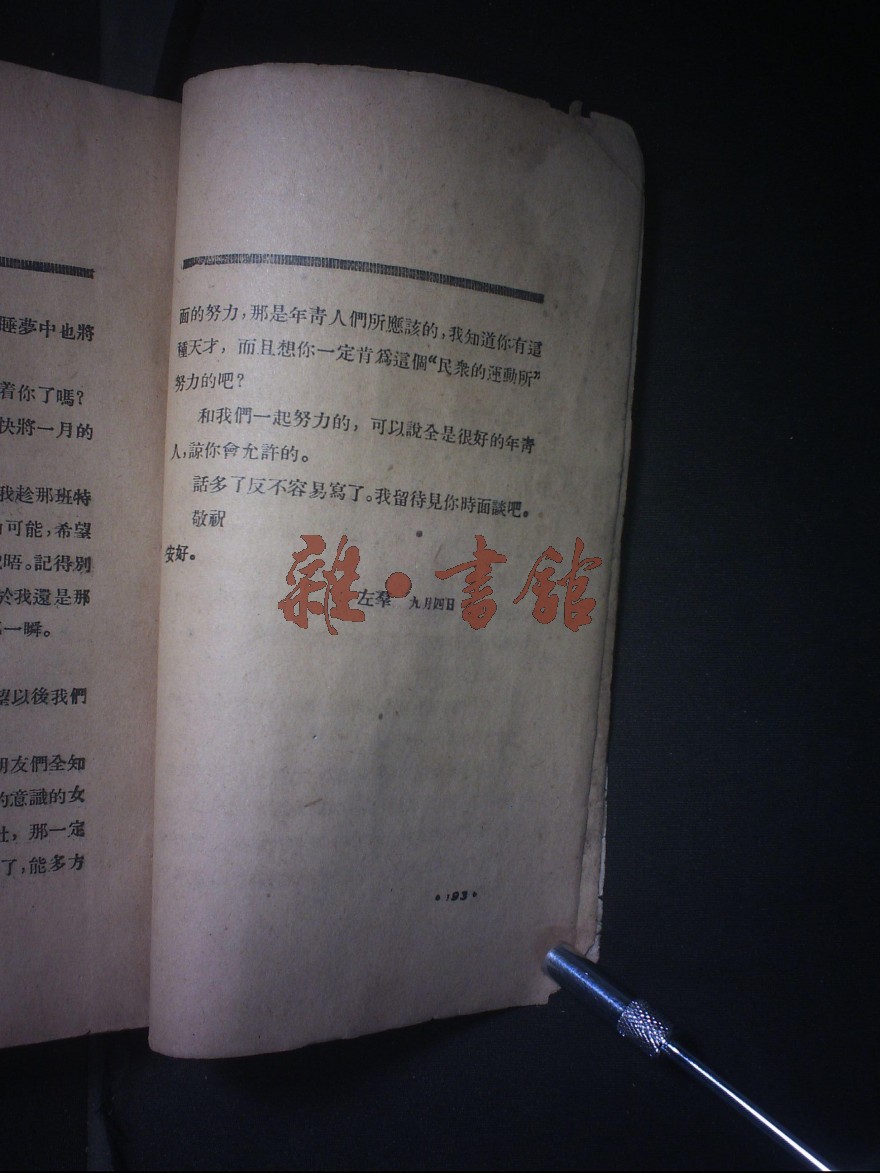 睡夢中也將
着你了嗎？
快將一月的
我趁那班特
可能，希望
晤。記得別
於我還是那
一瞬。
望以後我們
朋友們全知
的意識的女
社，那一定
了，能多方
面的努力，那是年靑人們所應該的，我知道你有這
種天才，而且想你一定肯爲這個“民衆的運動所”
努力的吧？
和我們一起努力的，可以說全是很好的年靑
人，諒你會允許的。
話多了反不容易寫了。我留待見你時面談吧。
敬祝
安好。
左羣 九月四日
雜·書館
·193·